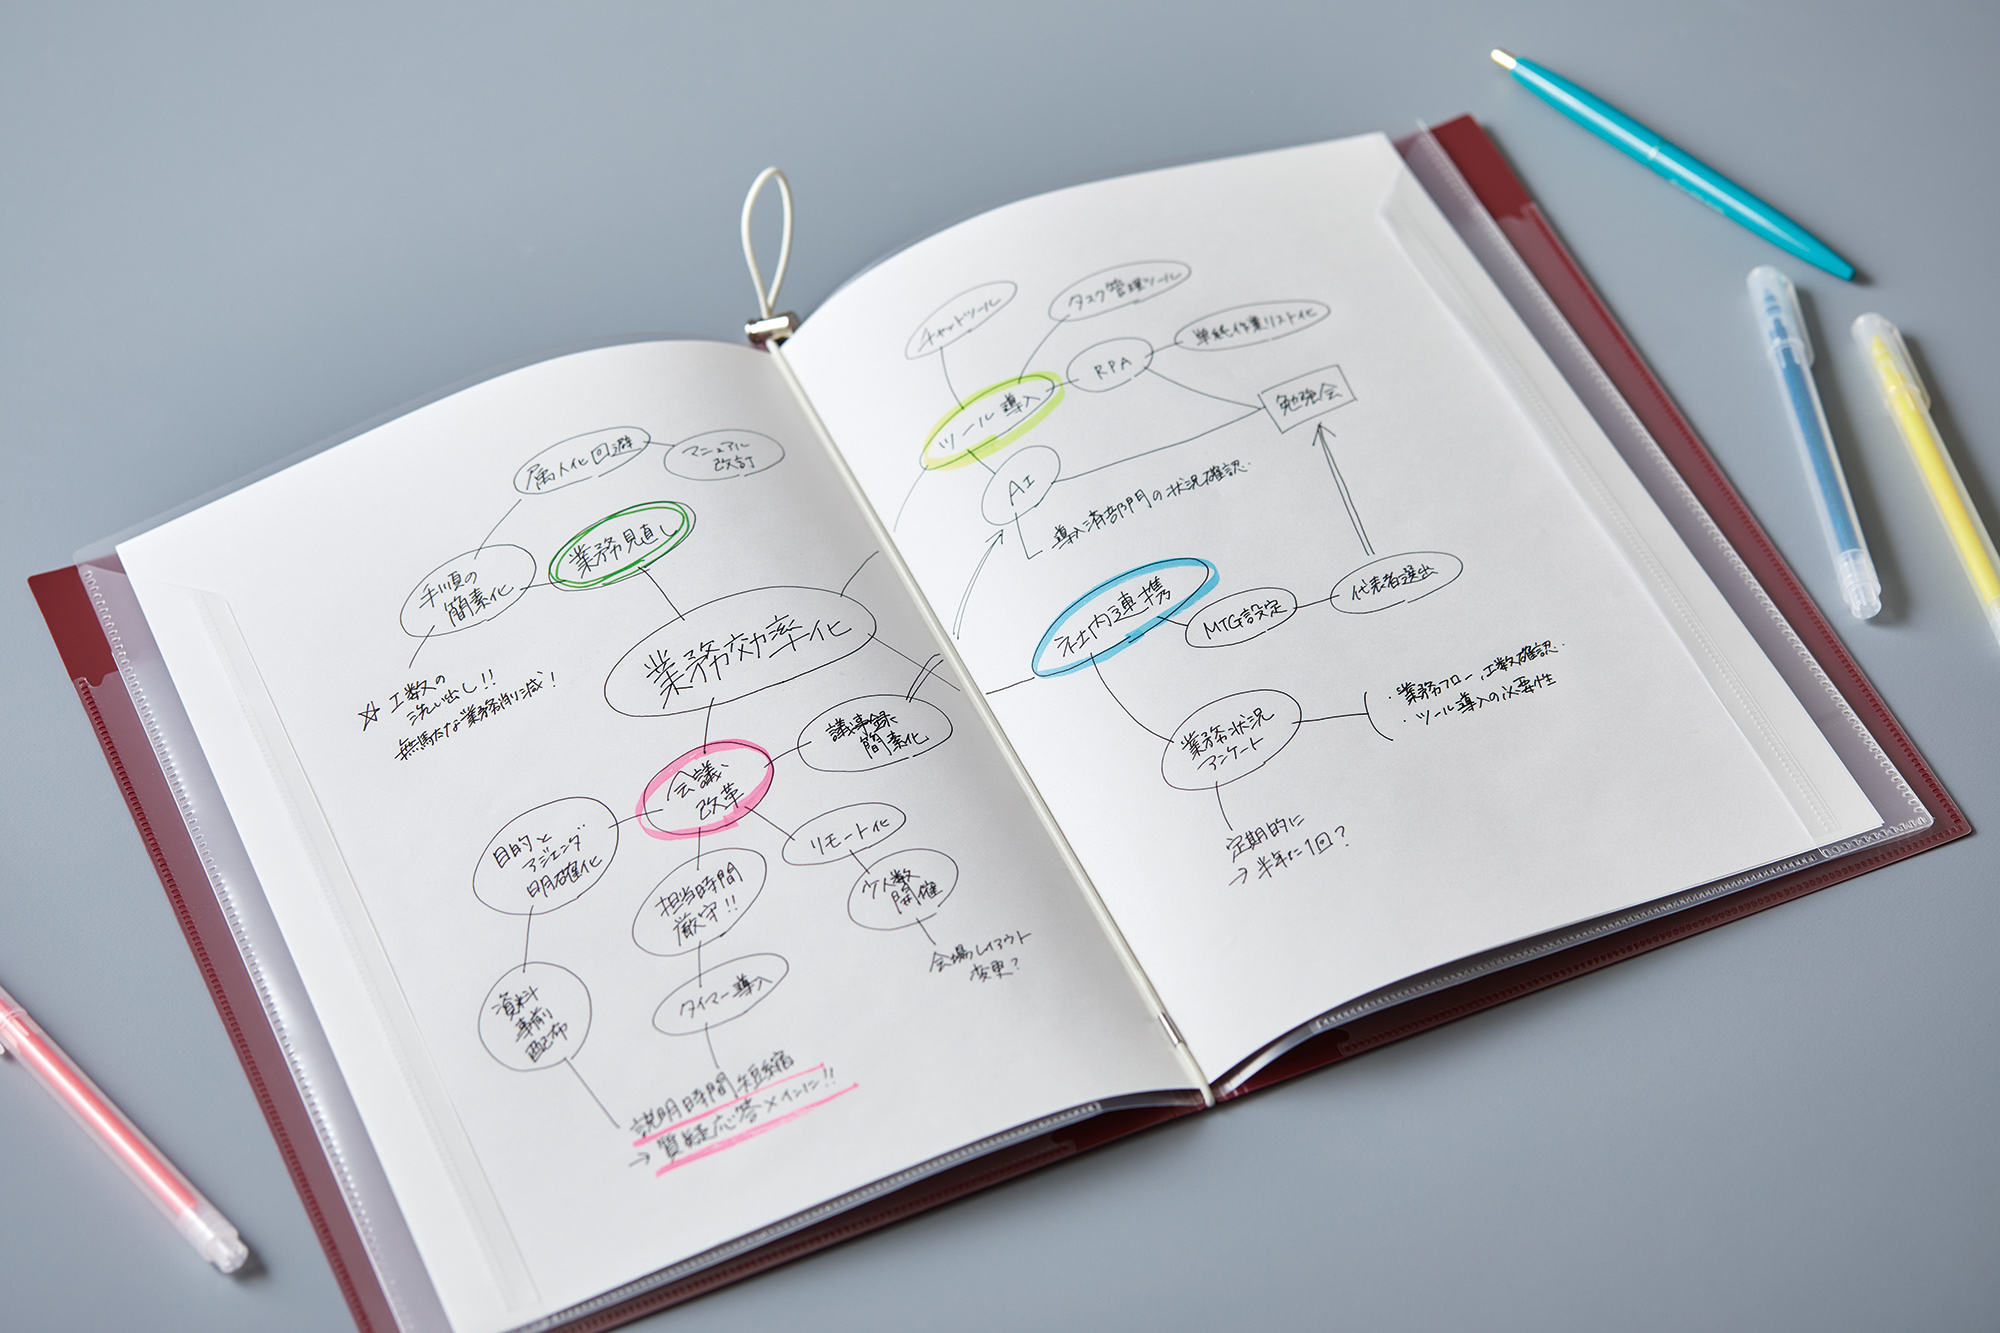 属人化回避
マニュアル
改訂
業務見直し
手順の
簡素化
☆ 工数の
洗い出し!!
無駄な業務削減!
業務効率化
議事録
簡素化
会議
改革
目的と
アジェンダ
明確化
担当時間
厳守!!
リモート化
少人数
開催
会場レイアウト
変更?
資料
事前
配布
タイマー導入
説明時間短縮
→ 質疑応答メインに!!
チャットツール
タスク管理ツール
単純作業リスト化
RPA
ツール導入
勉強会
AI
導入済部門の状況確認..
社内連携
MTG設定
代表者選出
業務状況
アンケート
・業務フロー、工数確認..
・ツール導入の必要性
定期的に
→ 半年に1回?